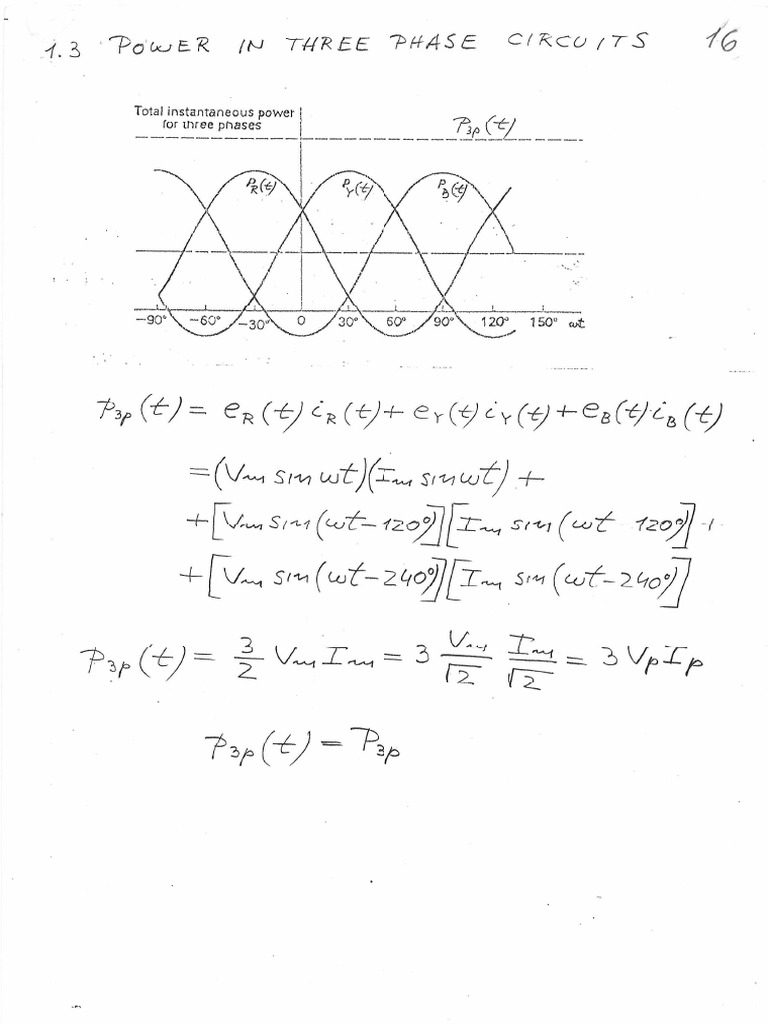 1.3 POWER IN THREE PHASE CIRCUITS 16
Total instantaneous power
for three phases
P3p(t)
PR(t) PY(t) PB(t)
-90° -60° -30° 0 30° 60° 90° 120° 150° ωt
P3p(t) = eR(t) iR(t) + eY(t) iY(t) + eB(t)·iB(t)
= (Vm sin ωt)(Im sin ωt) +
+ [Vm sin(ωt-120°)][Im sin(ωt 120°)] +
+ [Vm sin(ωt-240°)][Im sin(ωt-240°)]
P3p(t) = 3/2 Vm Im = 3 Vm/√2 Im/√2 = 3 Vp Ip
P3p(t) = P3p